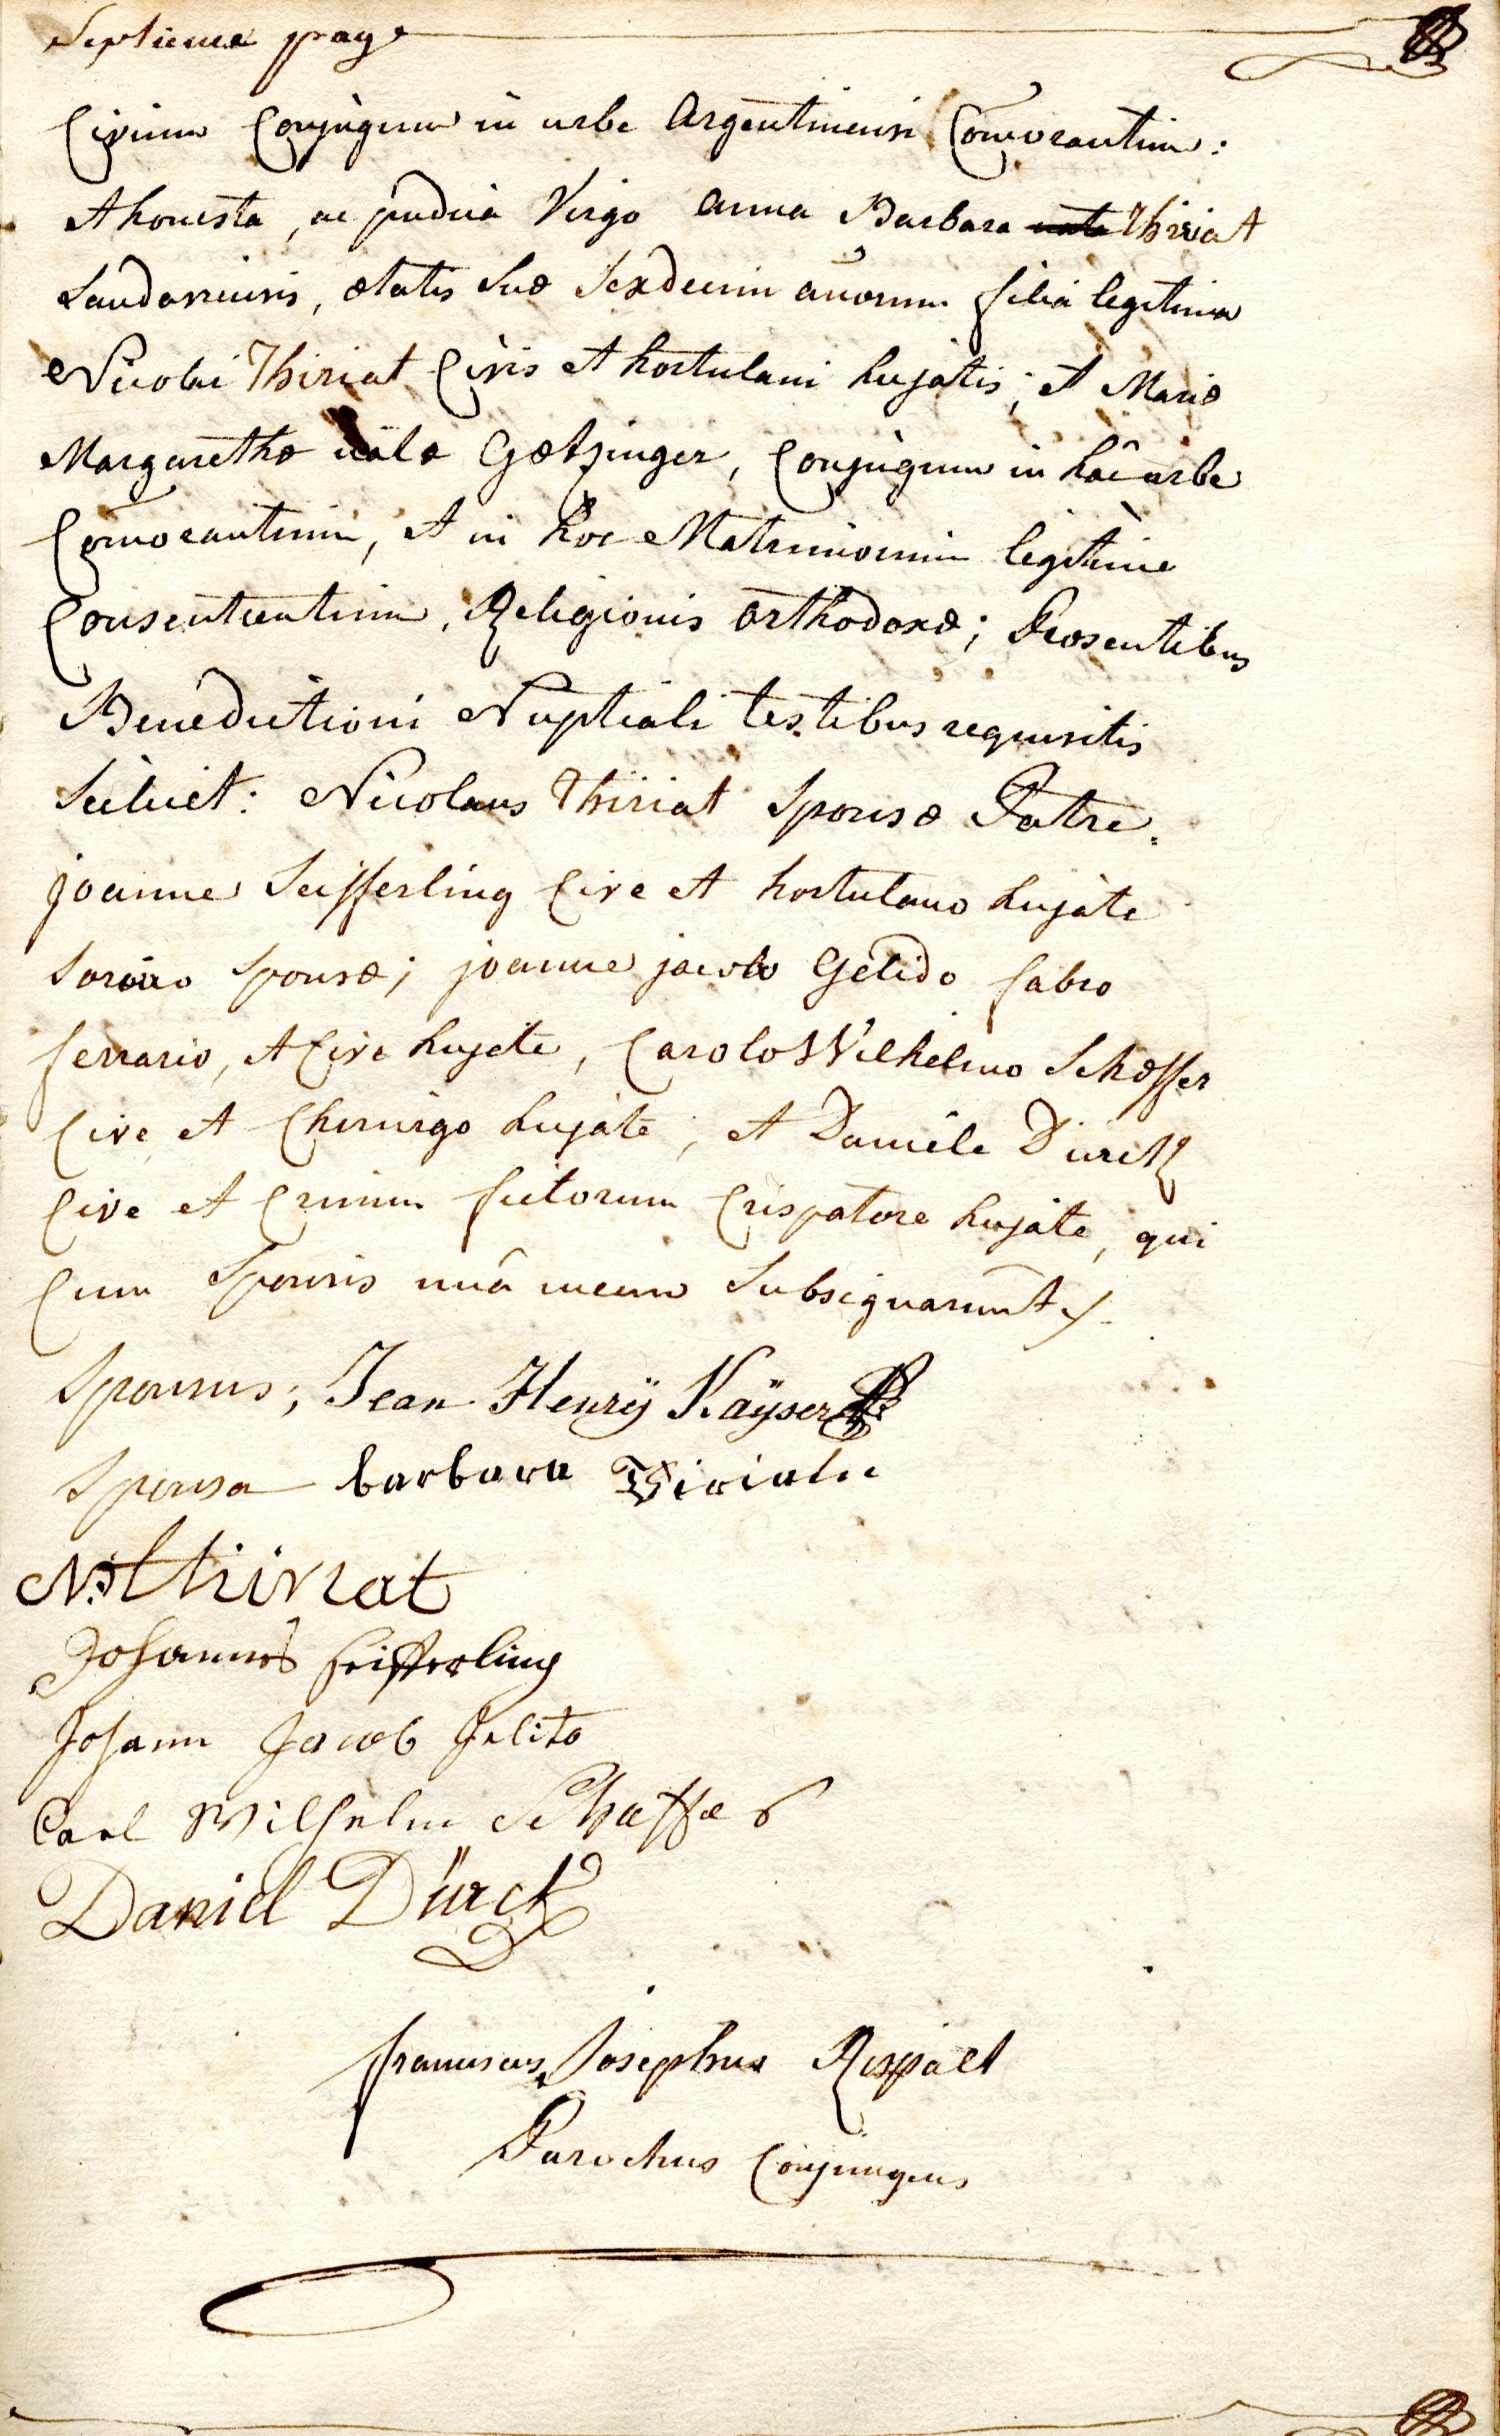 Septieme page
Civium Conjugum in urbe Argentinensi Comorantium:
Et honesta, ac pudica Virgo Anna Barbara nata Thiriat
Landaviensis, ætatis Suæ Sexdecim annorum filia legitima
Nicolai Thiriat Civis et hortulani hujatis; et Mariæ
Margarethæ natæ Gœtzinger, Conjugum in hâc urbe
Comorantium, et in hoc Matrimonium legitime
Consentientium, Religionis Orthodoxæ; Præsentibus
Benedictioni Nuptiali testibus requisitis
Scilicet: Nicolaus Thiriat Sponsæ Patre.
joanne Seifferling Cive et hortulano hujate
Sororio Sponsæ; joanne jacobo Gelido fabro
ferrario, et Cive hujate, Carolo Wilhelmo Schæffer
Cive et Chirurgo hujate, et Daniele Dürck
Cive et Crinium fictorum Crispatore hujate, qui
Cum Sponsis unâ mecum Subsignarunt
Sponsus; Jean Henrÿ Kaÿser
Sponsa barbara
N. thiriat
Johannes Seifferling
Johann Jacob Jelito
Carl Wilhelm Schæffer
Daniel Dürck
franciscus Josephus Rispalt
Parochus Conjungens